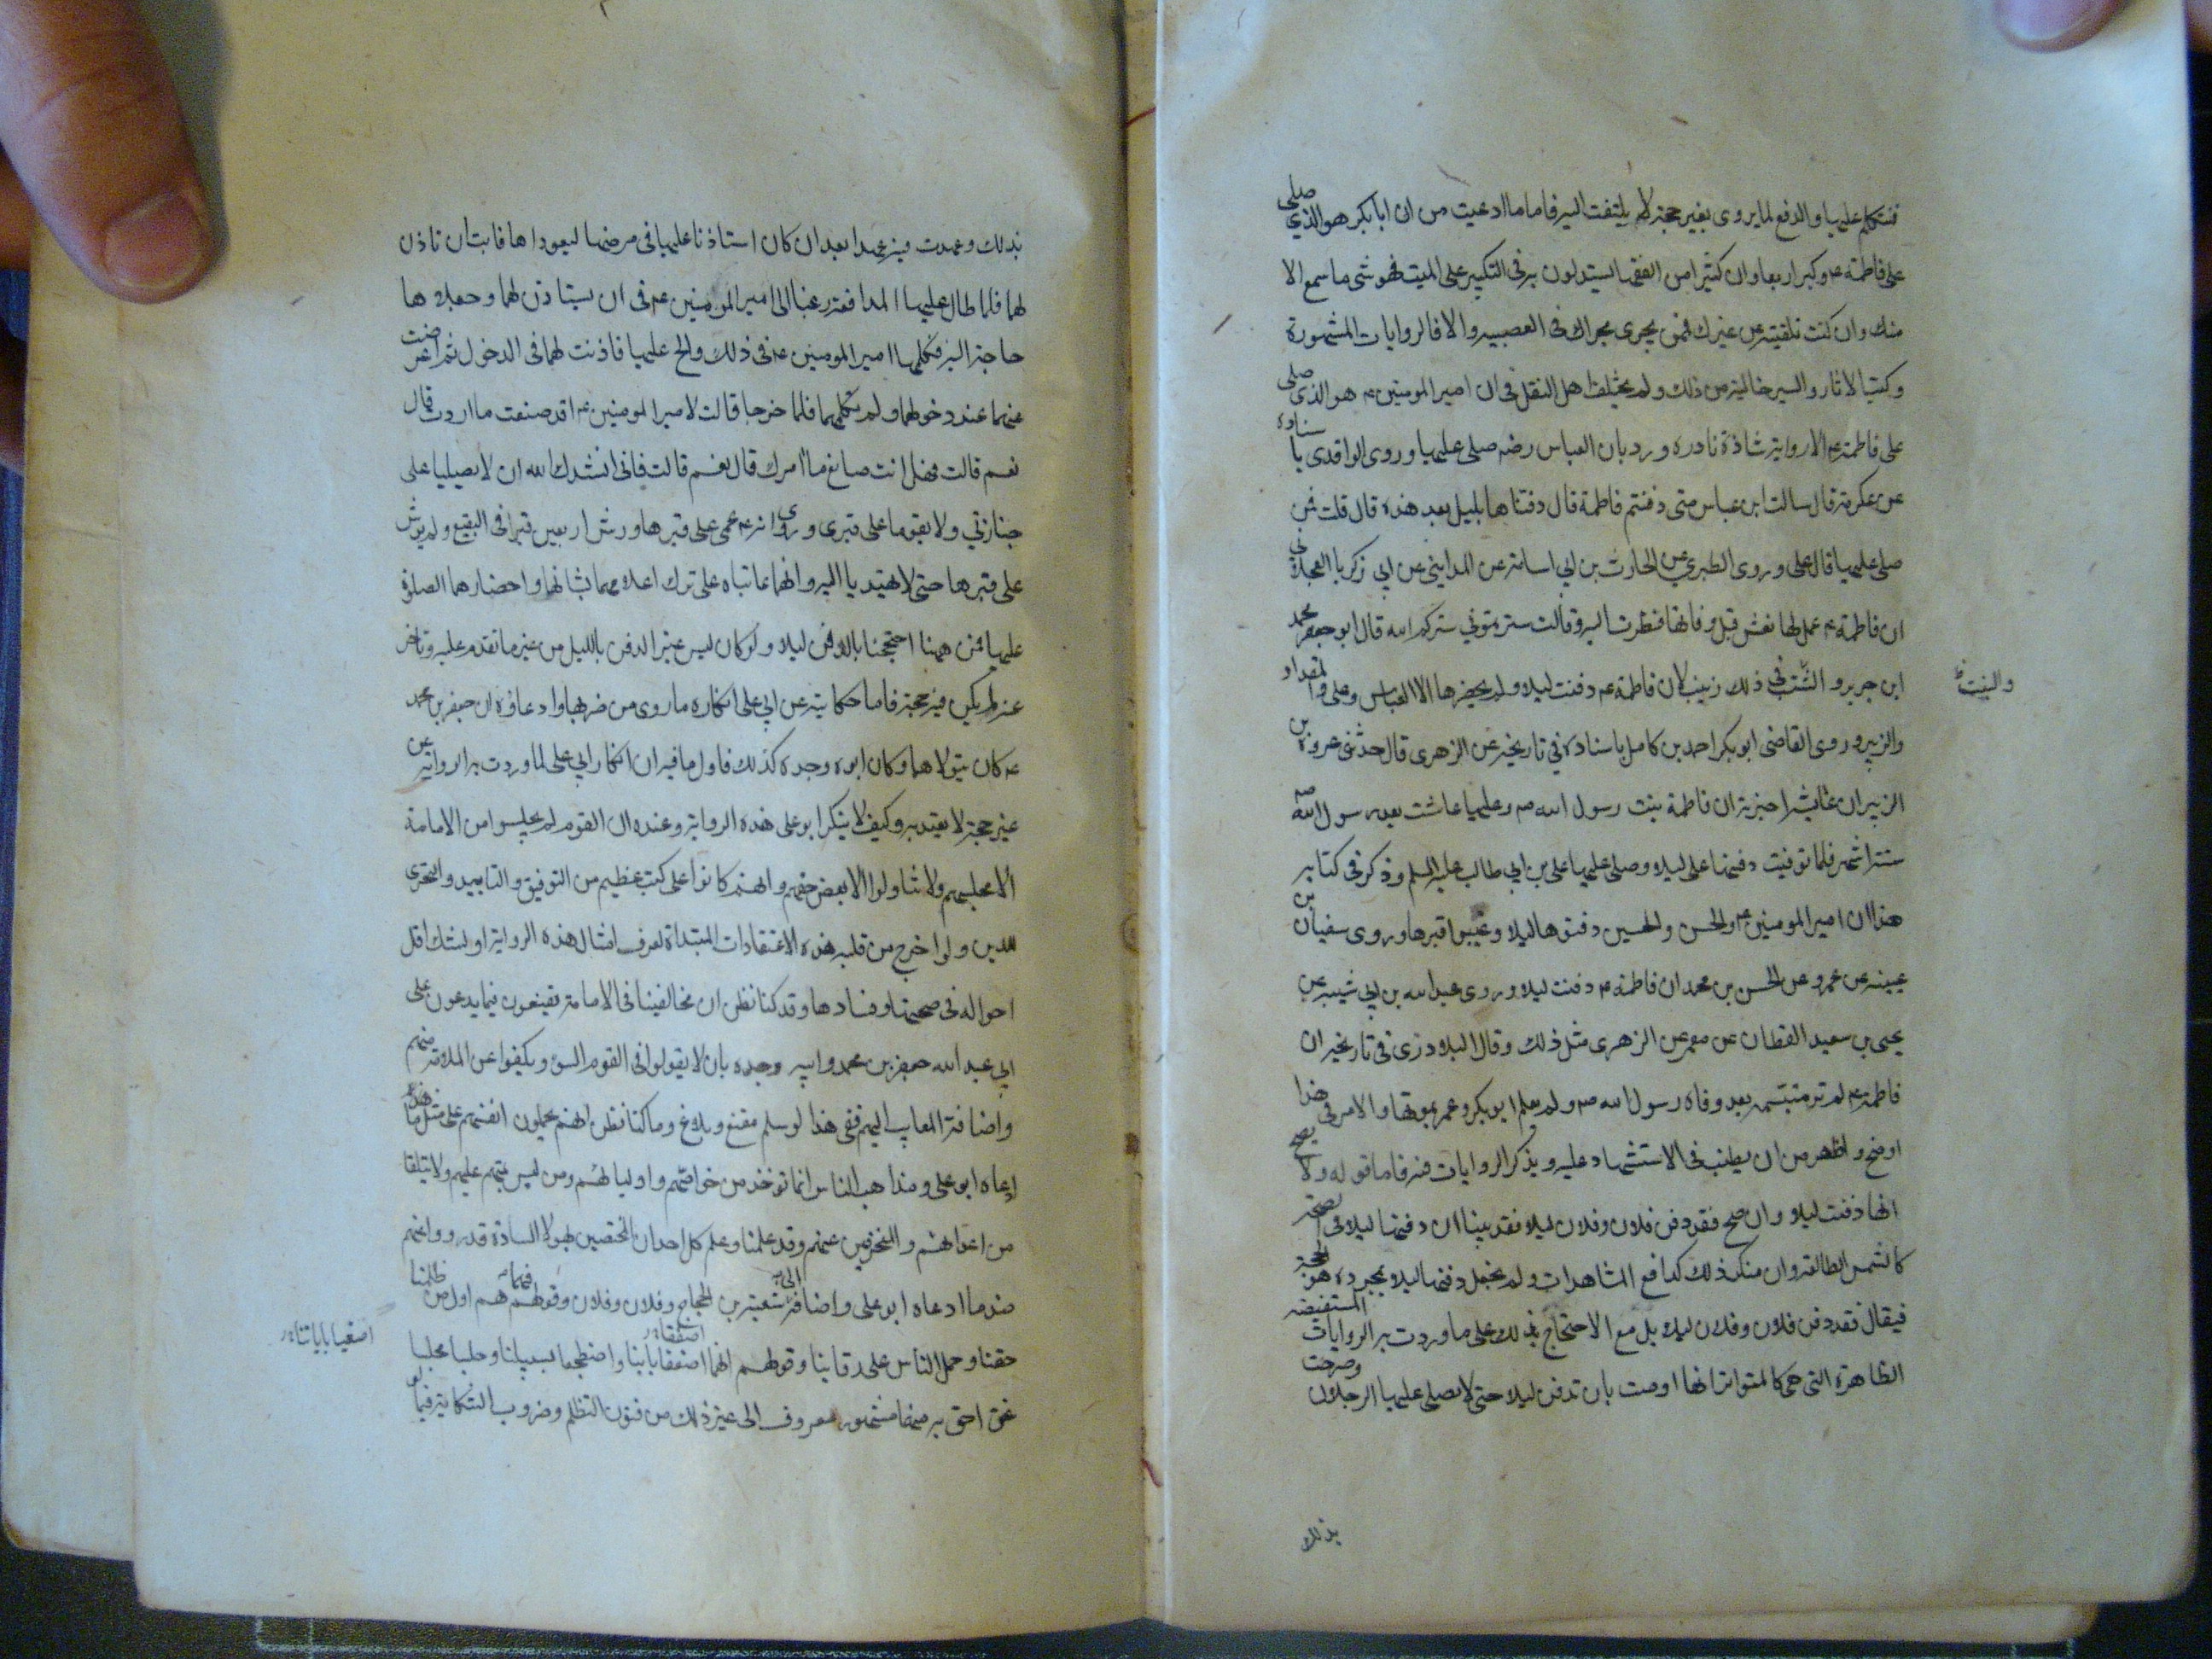 فنتكلم عليها والدفع لما يروى بغير حجة لا يلتفت اليه فاما ما ادعيت من ان ابا بكر هو الذي صلى
على فاطمة ع وكبر اربعا وان كثيرا من الفقها يستدلون به في التكبير على الميت فهو شى ما سمع الا
منك وان كنت تلقيته عن غيرك فممن يجرى مجراك فى العصبية والا فالروايات المشهورة
وكتب الاثار والسير خالية من ذلك ولم يختلف اهل النقل في ان امير المومنين ع هو الذى صلى
على فاطمة ع الا رواية شاذة نادرة وردت بان العباس رضه صلى عليها وروى الواقدى باسناده
عن عكرمة قال سالت ابن عباس متى دفنتم فاطمة قال دفناها بليل بعد هذه قال قلت فمن
صلى عليها قال على وروى الطبري عن الحارث بن ابي اسامة عن المدايني عن ابي زكريا العجلاني
ان فاطمة ع عمل لها نعش قبل وفاتها فنظرت اليه وقالت سترتموني ستركم الله قال ابو جعفر محمد
ابن جرير والثبت في ذلك زينب لان فاطمة ع دفنت ليلا ولم يحضرها الا العباس وعلى والمقداد
والثبت
والزبير وروى القاضى ابو بكر احمد بن كامل باسناده في تاريخه عن الزهرى قال حدثنى عروة بن
الزبير ان عايشة اخبرته ان فاطمة بنت رسول الله ص وعليها عاشت بعد رسول الله ص
ستة اشهر فلما توفيت دفنها على ليلا وصلى عليها على بن ابي طالب عليه السلم وذكر في كتابه
هذا ان امير المومنين ع والحسن والحسين دفنوها ليلا وغيبوا قبرها وروى سفيان بن
عيينة عن عمرو عن الحسن بن محمد ان فاطمة ع دفنت ليلا وروى عبد الله بن ابي شيبة عن
يحيى بن سعيد القطان عن معمر عن الزهرى مثل ذلك وقال البلاذرى في تاريخه ان
فاطمة ع لم تر متبسمة بعد وفاة رسول الله ص ولم يعلم ابو بكر وعمر بموتها والامر في هذا
اوضح واظهر من ان يطنب فى الاستشهاد عليه ويذكر الروايات فيه فاما قوله ولا يصح
انها دفنت ليلا وان صح فقد دفن فلان وفلان ليلا فقد بينا ان دفنها ليلا في الصحة
كالشمس الطالعة وان منكر ذلك كدافع المشاهدات ولم يجعل دفنها ليلا بمجرده هو الحجة
فيقال فقد دفن فلان وفلان ليلا بل مع الاحتجاج بذلك على ما وردت به الروايات المستفيضة
الظاهرة التى هي كالمتواتر انها اوصت بان تدفن ليلا حتى لا يصلى عليها الرجلان وصرحت
بذلك
بذلك وعهدت فيه عهدا بعد ان كان استاذنا عليها فى مرضها ليعوداها فابت ان تاذن
لهما فلما طال عليهما المدافعة رغبا الى امير المومنين ع فى ان يستاذن لهما وجعلاها
حاجة اليه فكلمها امير المومنين ع فى ذلك والح عليها فاذنت لهما فى الدخول ثم اعرضت
عنهما عند دخولهما ولم تكلمهما فلما خرجا قالت لامير المومنين ع اقد صنعت ما اردت قال
نعم قالت فهل انت صانع ما امرك قال نعم قالت فانى انشدك الله ان لا يصليا على
جنازتي ولا يقوما على قبرى وروى انه ع عمى على قبرها ورش اربعين قبرا فى البقيع ولم يرش
على قبرها حتى لا يهتديا اليه وانهما عاتباه على ترك اعلامهما بشانها واحضارهما الصلوة
عليها فمن ههنا احتججنا بالدفن ليلا ولو كان ليس غير الدفن بالليل من غير ما تقدم عليه وتاخر
عنه لم يكن فيه حجة فاما حكايته عن ابي على انكاره ما روى من ضربها وادعاوه ان جعفر بن محمد
ع كان يتولاهما وكان ابوه وجده كذلك فاول ما فيه ان انكار ابي على لما وردت به الرواية عن
غير حجة لا يعتد به وكيف لا ينكر ابو على هذه الرواية وعنده ان القوم لم يجلسوا من الامامة
الا مجلسهم ولا تناولوا الا بعض حقهم وانهم كانوا على كتب عظيم من التوفيق والتاييد والتحرى
للدين ولو اخرج من قلبه هذه الاعتقادات المبتداة لعرف امثال هذه الرواية او لشك اقل
احواله في صحتها وفسادها وقد كنا نظن ان مخالفينا فى الامامة يقنعون فيما يدعون على
ابي عبد الله جعفر بن محمد وابيه وجده بان لا يقولوا فى القوم السوء ويكفوا عن الملامة منهم
واضافة المعايب اليهم ففى هذا لو سلم مقنع وبلاغ وما كنا نظن انهم يحملون انفسهم على مثل ما هذا
ادعاه ابو على ومذاهب الناس انما توخذ من خواصهم واوليائهم ومن ليس بمتهم عليهم ولا يتلقا
من اعدائهم والمنحرفين عنهم وقد علمنا وعلم كل احد ان المختصين بهولا السادة قد رووا عنهم
ضد ما ادعاه ابو على واضافه الى شعبة بن الحجاج وفلان وفلان وقولهم فيهما هم اول من ظلمنا
حقنا وحمل الناس على رقابنا وقولهم انهما اصفقا بابنا واضطجعا بسبيلنا وجلسا مجلسا
اصفقا
اصغيا باياتنا
نحن احق به منهما مشهور معروف الى غير ذلك من فنون التظلم وضروب الشكاية فيما لو